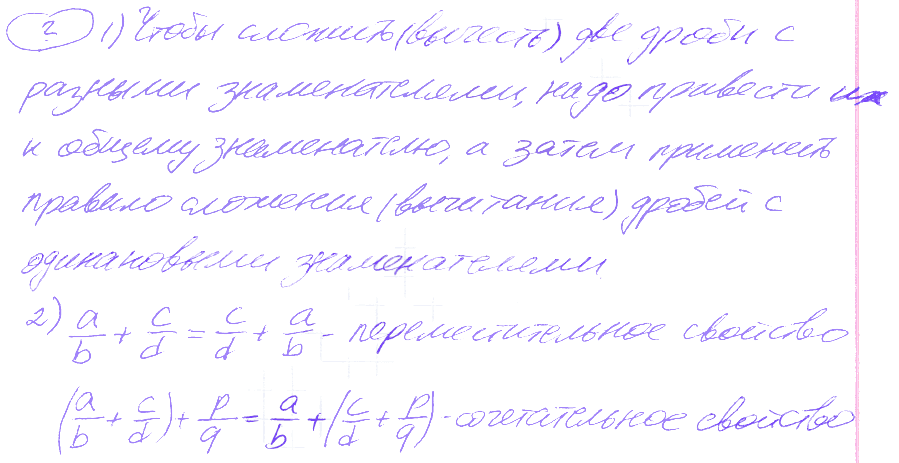 ? 1) Чтобы сложить (вычесть) две дроби с
разными знаменателями, надо привести их
к общему знаменателю, а затем применить
правило сложения (вычитания) дробей с
одинаковыми знаменателями
2) a/b + c/d = c/d + a/b - переместительное свойство
(a/b + c/d) + p/q = a/b + (c/d + p/q) - сочетательное свойство